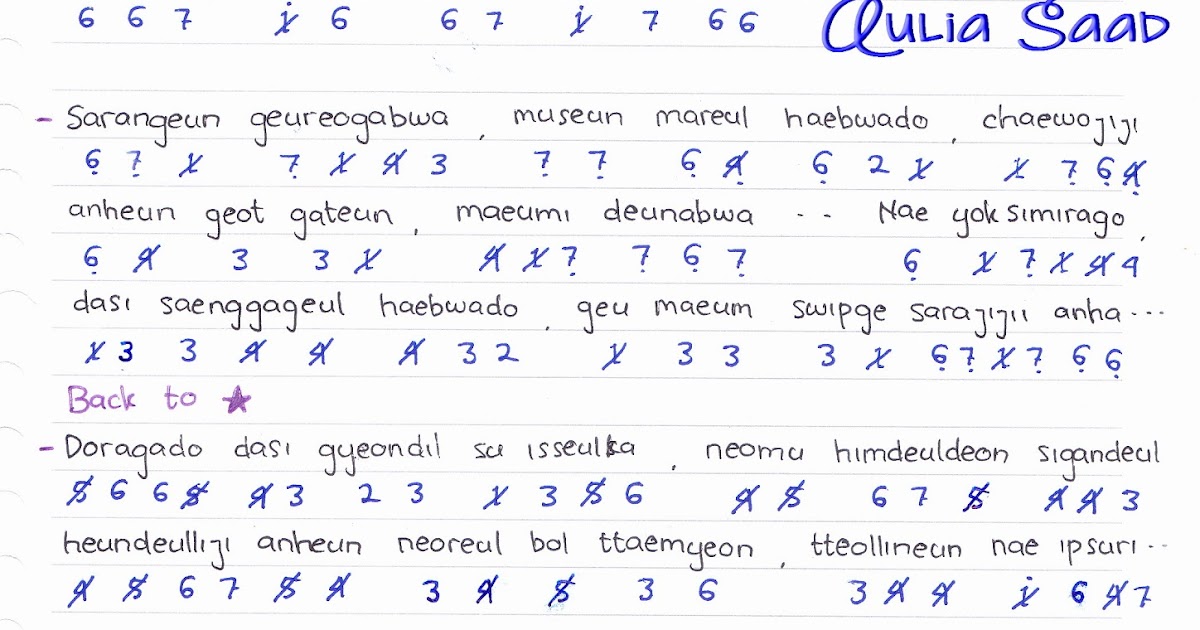 6 6 7 i̸ 6 6 7 i̸ 7 6 6 Aulia Saad
- Sarangeun geureogabwa, museun mareul haebwado, chaewojiji
6̣ 7̣ 1̸ 7̣ 1̸ 4̸ 3 7̣ 7̣ 6̣ 4̸̣ 6̣ 2 1̸ 1̸ 7̣ 6̣ 4̸̣
anheun geot gateun, maeumi deunabwa .. Nae yoksimirago,
6̣ 4̸ 3 3 1̸ 4̸ 1̸ 7̣ 7̣ 6̣ 7̣ 6̣ 1̸ 7̣ 1̸ 4̸ 4
dasi saenggageul haebwado, geu maeum swipge sarajijii anha...
1̸ 3 3 4̸ 4̸ 4̸ 3 2 1̸ 3 3 3 1̸ 6̣ 7̣ 1̸ 7̣ 6̣ 6̣
Back to ★
- Doragado dasi gyeondil su isseulka, neomu himdeuldeon sigandeul
5̸ 6 6 5̸ 4̸ 3 2 3 1̸ 3 5̸ 6 4̸ 5̸ 6 7 5̸ 4̸ 4̸ 3
heundeulliji anheun neoreul bol ttaemyeon, tteollineun nae ipsuri..
4̸ 5̸ 6 7 5̸ 4̸ 3 4̸ 5̸ 3 6 3 4̸ 4̸ i̸ 6 4̸ 7